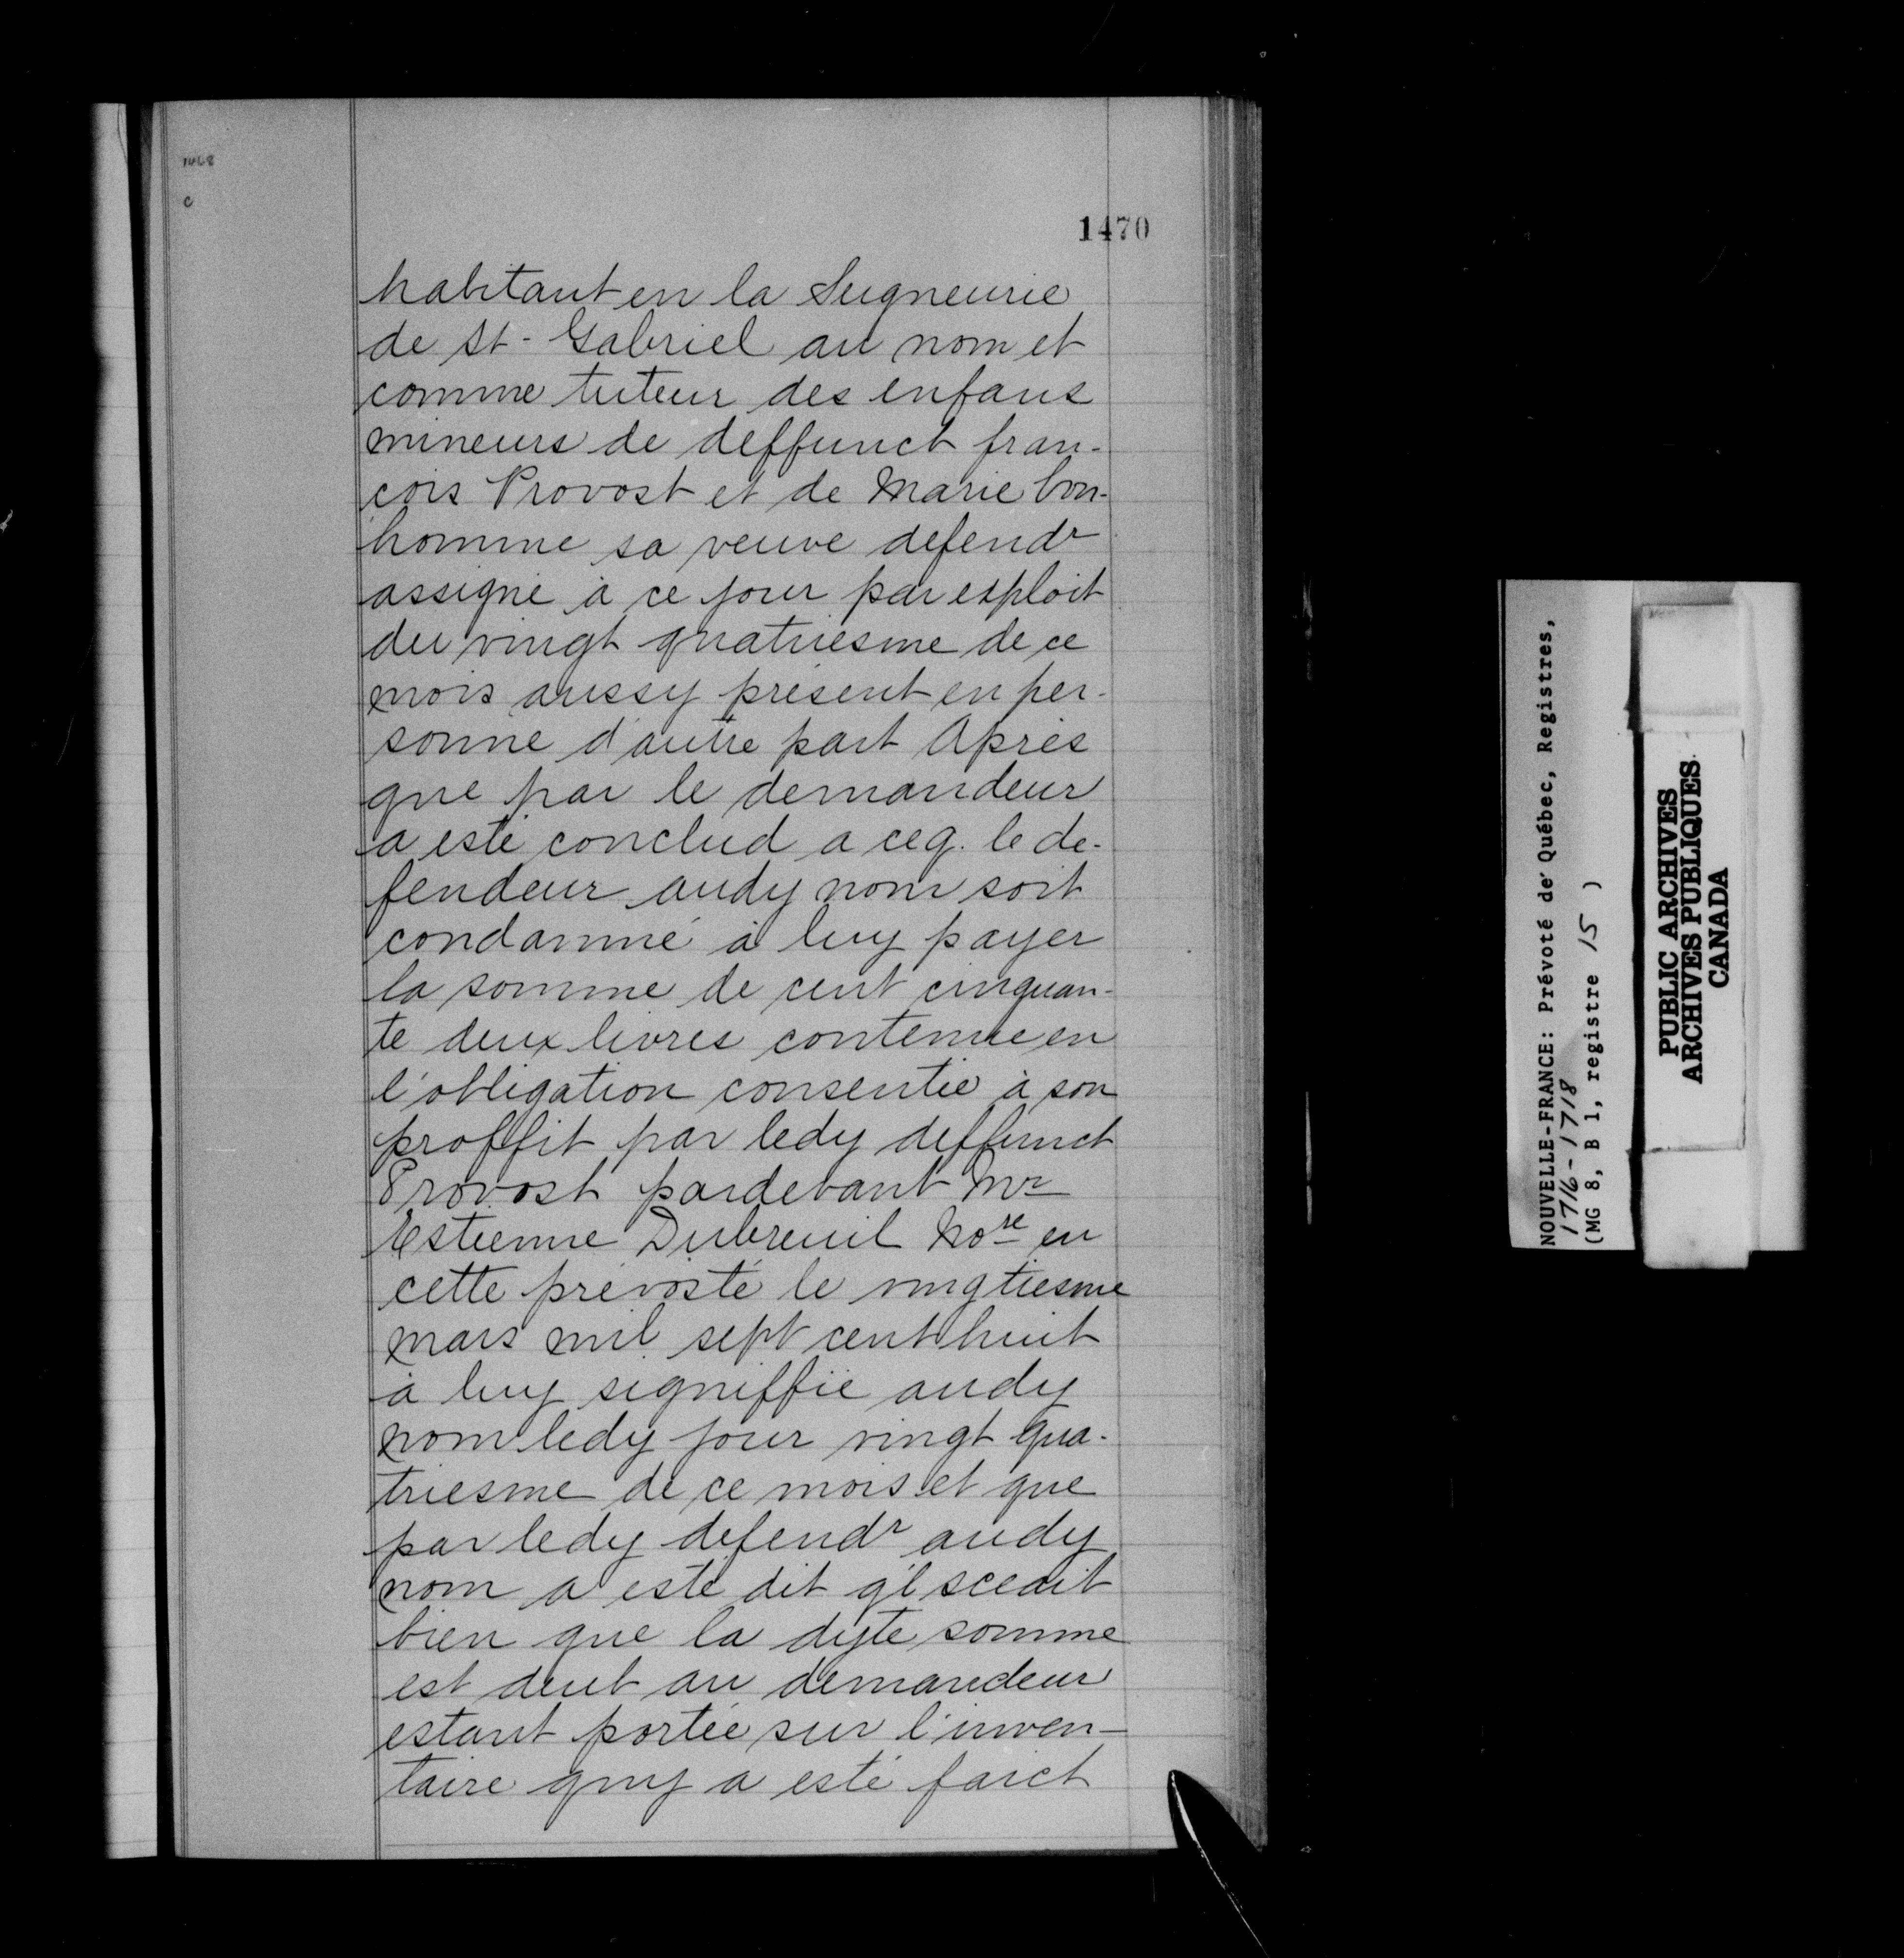 1470
habitant en la Seigneurie
de St-Gabriel au nom et
comme tuteur des enfans
mineurs de deffunct fran-
çois Provost et de Marie bon-
homme sa veuve defendr
assigné à ce jour par exploit
du vingt quatriesme de ce
mois aussy présent en per-
sonne d'autre part Après
que par le demandeur
a esté conclud a ceq. le de-
fendeur audy nom soit
condamné à luy payer
la somme de cent cinquan-
te deux livres contenue en
l'obligation consentie à son
proffit par ledy deffunct
Provost pardevant Mr
Estienne Dubreuil Nore en
cette prévosté le vingtiesme
mars mil sept cent huit
à luy signiffié audy
nom ledy jour vingt qua-
triesme de ce mois et que
par ledy defendr audy
nom a esté dit q'l sceait
bien que la dyte somme
est deub au demandeur
estant portée sur l'inven-
taire quy a esté faict
NOUVELLE-FRANCE: Prévoté de Québec, Registres,
1716-1718
(MG 8, B 1, registre 15 )
PUBLIC ARCHIVES
ARCHIVES PUBLIQUES
CANADA